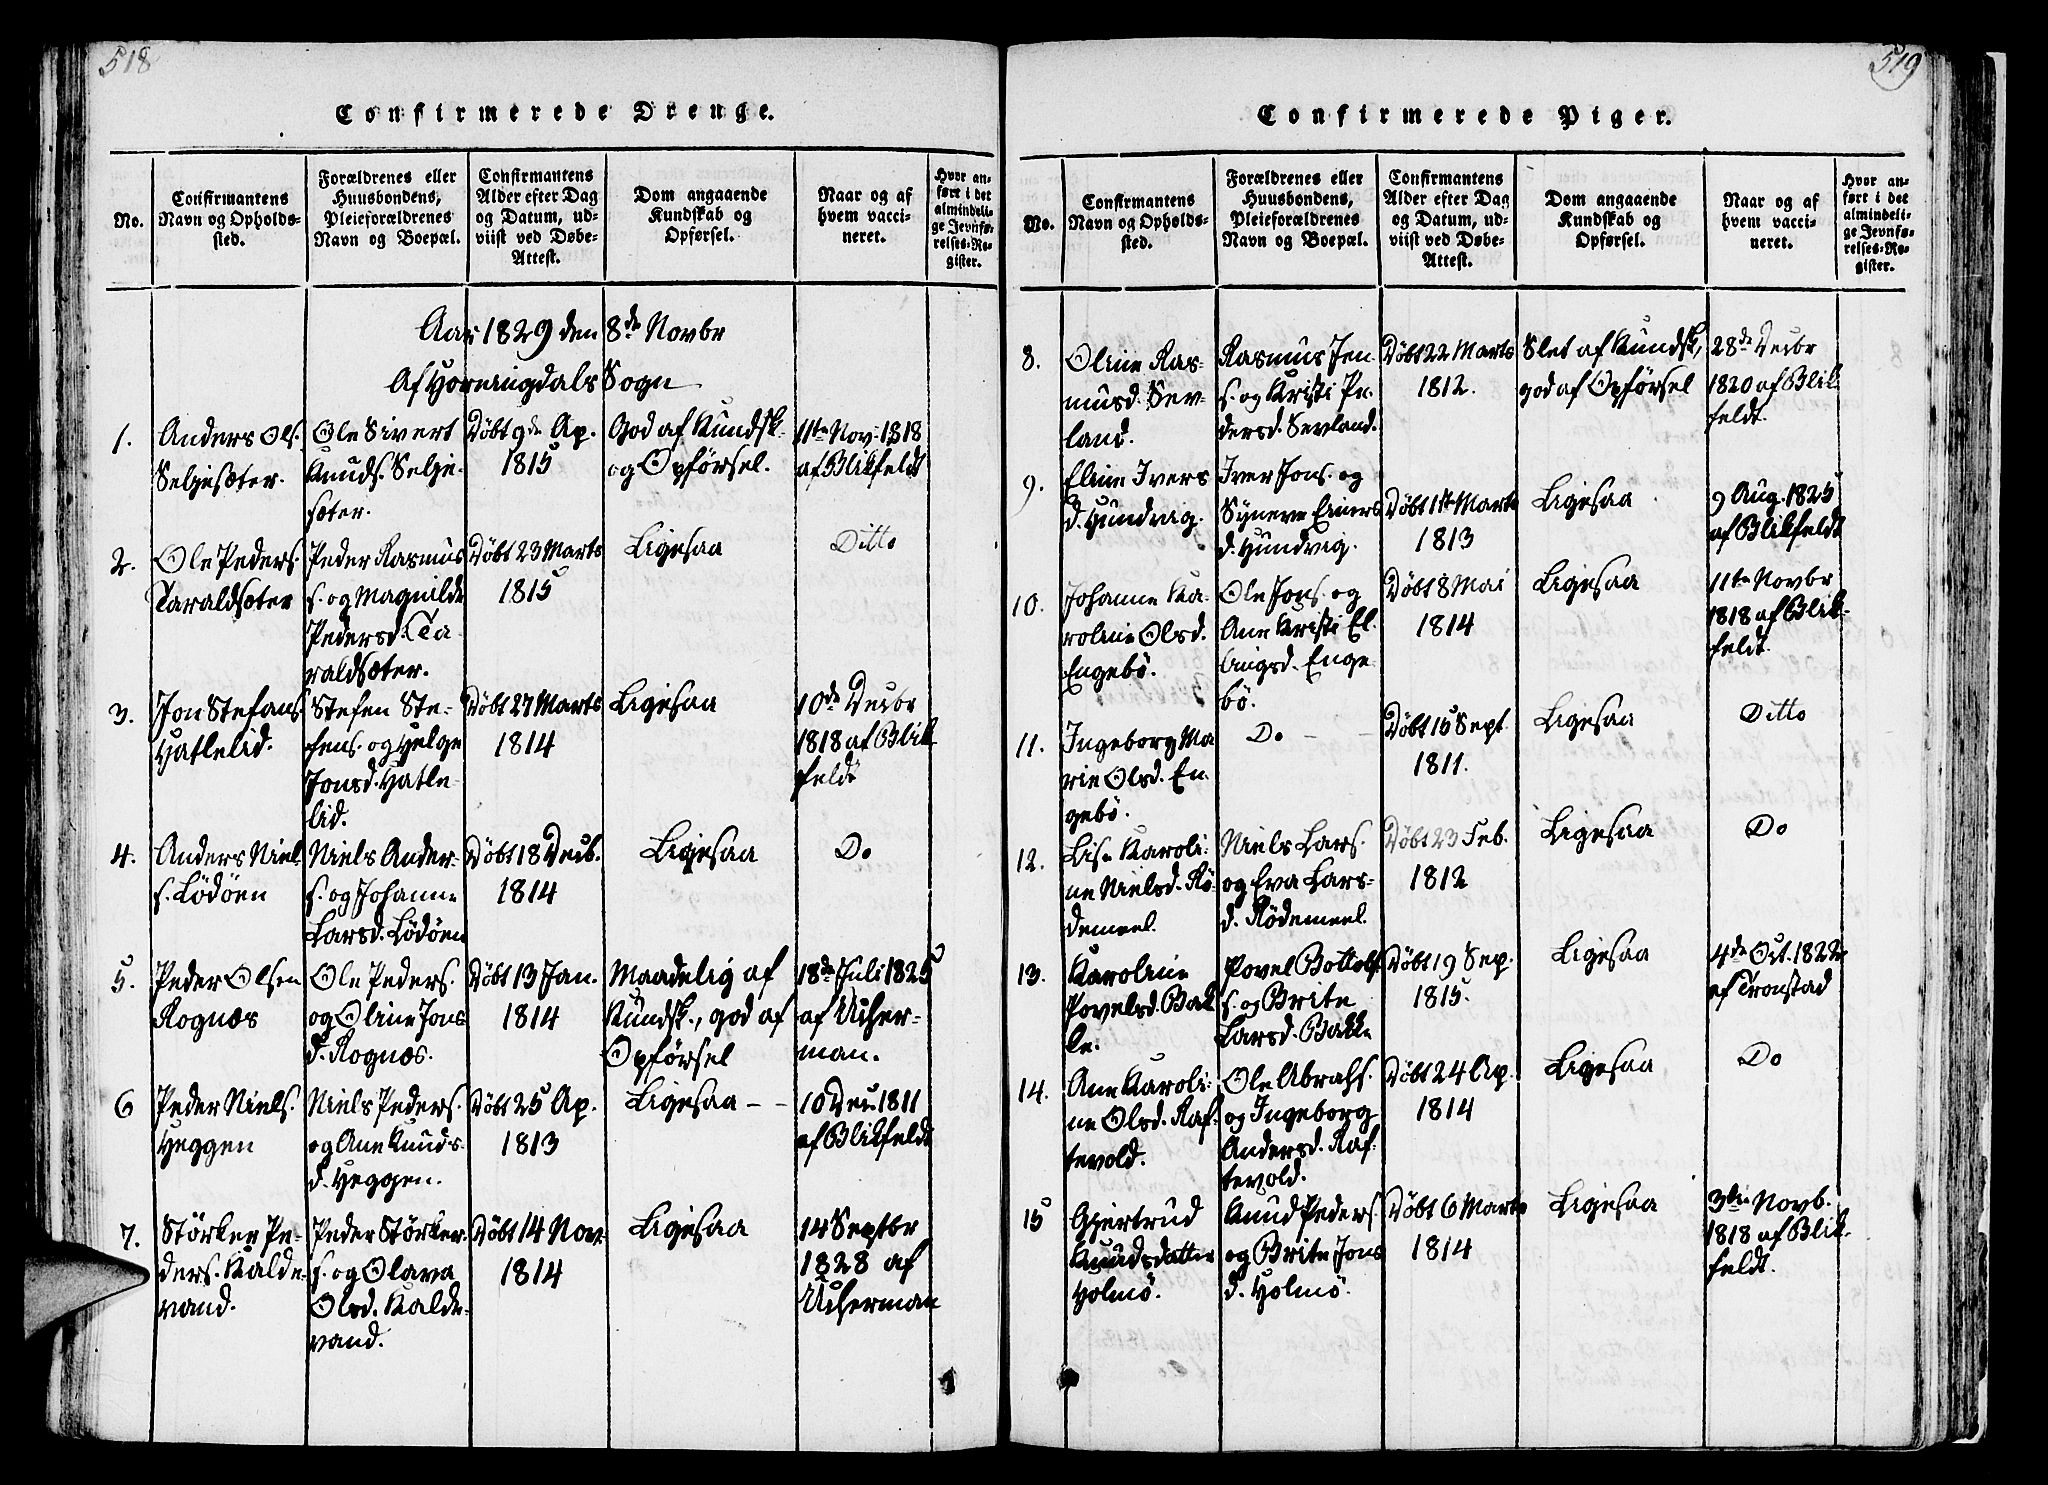 518
Confirmerede Drenge.
No.
Confirmantens
Navn og Opholds-
sted.
Forældrenes eller
Huusbondens,
Pleieforældrenes
Navn og Boepæl.
Confirmantens
Alder efter Dag
og Datum, ud-
viist ved Døbe-
Attest.
Dom angaaende
Kundskab og
Opførsel.
Naar og af
hvem vacci-
neret.
Hvor an-
ført i det
almindeli-
ge Jevnfø-
relses-Re-
gister.
Aar 1829 den 8de Novbr
Af Horningdals Sogn
1.
Anders Ols.
Seljesæter.
Ole Sivert
Knuds. Selje-
sæter.
Døbt 9de Ap.
1815
God af Kundsk.
og Opførsel.
11te Nov. 1818
af Blikfeldt
2.
Ole Peders.
Taraldsæter
Peder Rasmus
s. og Magnilde
Pedersd. Ta-
raldsæter.
Døbt 23 Marts
1815
Ligesaa
Ditto
3.
Jon Stefans.
Hatlelid.
Stefen Ste-
fens. og Helge
Jonsd. Hatle-
lid.
Døbt 27 Marts
1814
Ligesaa
10de Decbr
1818 af Blik
feldt
4.
Anders Niel
s. Lödöen
Niels Ander-
s. og Johanne
Larsd. Lödöen
Døbt 18 Decb.
1814
Ligesaa
Do
5.
Peder Olsen
Rognæs
Ole Peders.
og Oline Jons
d. Rognæs.
Døbt 13 Jan.
1814
Maadelig af
Kundsk., god af
Opførsel
18de Juli 1825
af Ucher-
man.
6
Peder Niels.
Heggen
Niels Peders.
og Ane Knuds-
d. Heggen.
Døbt 25 Ap.
1813
Ligesaa - -
10 Dec. 1811
af Blikfeldt
7.
Störker Pe-
ders. Kalde-
vand.
Peder Störker
s. og Olava
Olsd. Kalde-
vand.
Døbt 14 Nov.
1814
Ligesaa
14 Septbr
1828 af
Ucherman
519
Confirmerede Piger.
No.
Confirmantens
Navn og Opholds-
sted.
Forældrenes eller
Huusbondens,
Pleieforældrenes
Navn og Boepæl.
Confirmantens
Alder efter Dag
og Datum, ud-
viist ved Døbe-
Attest.
Dom angaaende
Kundskab og
Opførsel.
Naar og af
hvem vacci-
neret.
Hvor an-
ført i det
almindeli-
ge Jevnfø-
relses-Re-
gister.
8.
Oline Ras-
musd. Sev-
land.
Rasmus Jen
s. og Kristi Pe-
dersd. Sevland.
Døbt 22 Marts
1812.
Slet af Kundsk,
god af Opførsel
28de Decbr
1820 af Blik
feldt.
9.
Eline Ivers
d. Hundvig.
Iver Jons. og
Syneve Einers
d. Hundvig.
Døbt 1ste Marts
1813
Ligesaa
9 Aug. 1825
af Blikfeldt
10.
Johanne Ka-
roline Olsd.
Engebö.
Ole Jons. og
Ane Kristi El-
lingsd. Enge-
bö.
Døbt 8 Mai
1814
Ligesaa
11te Novbr
1818 af Blik-
feldt.
11.
Ingeborg Ma
rie Olsd. En-
gebö.
Do - -
Døbt 15 Sept.
1811.
Ligesaa
Ditto
12.
Lise Karoli-
ne Nielsd. Rö-
demeel.
Niels Lars.
og Eva Lars-
d. Rödemeel.
Døbt 23 Feb.
1812
Ligesaa
Do
13.
Karoline
Povelsd. Bak
ke.
Povel Bottolf
s. og Brite
Larsd. Bakke
Døbt 19 Sep.
1815.
Ligesaa
4de Oct. 1822
af Tronstad
14.
Ane Karoli-
ne Olsd. Raf-
tevold.
Ole Abrahs.
og Ingeborg
Andersd. Raf-
tevold.
Døbt 24 Ap.
1814
Ligesaa
Do
15
Gjertrud
Knudsdatter
Holmö.
Knud Peders.
og Brite Jons
d. Holmö.
Døbt 6 Marts
1814
Ligesaa
3die Novb.
1818 af Blik-
feldt.